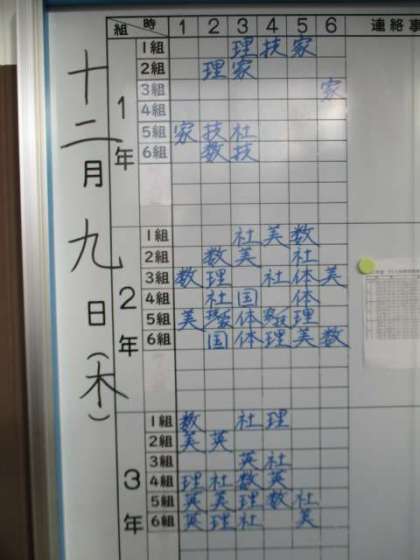 組 時 1 2 3 4 5 6 連絡事
十二月九日(木)
1年
1組 理 技 家
2組 理 家
3組 家
4組
5組 家 技 社
6組 数 技
2年
1組 社 美 数
2組 数 美 社
3組 数 理 社 体 美
4組 社 国 体
5組 美 体 理
6組 国 体 理 美 数
3年
1組 数 社 理
2組 美 英
3組 英 社
4組 理 社 数 英
5組 英 美 理 数 社
6組 英 理 社 美